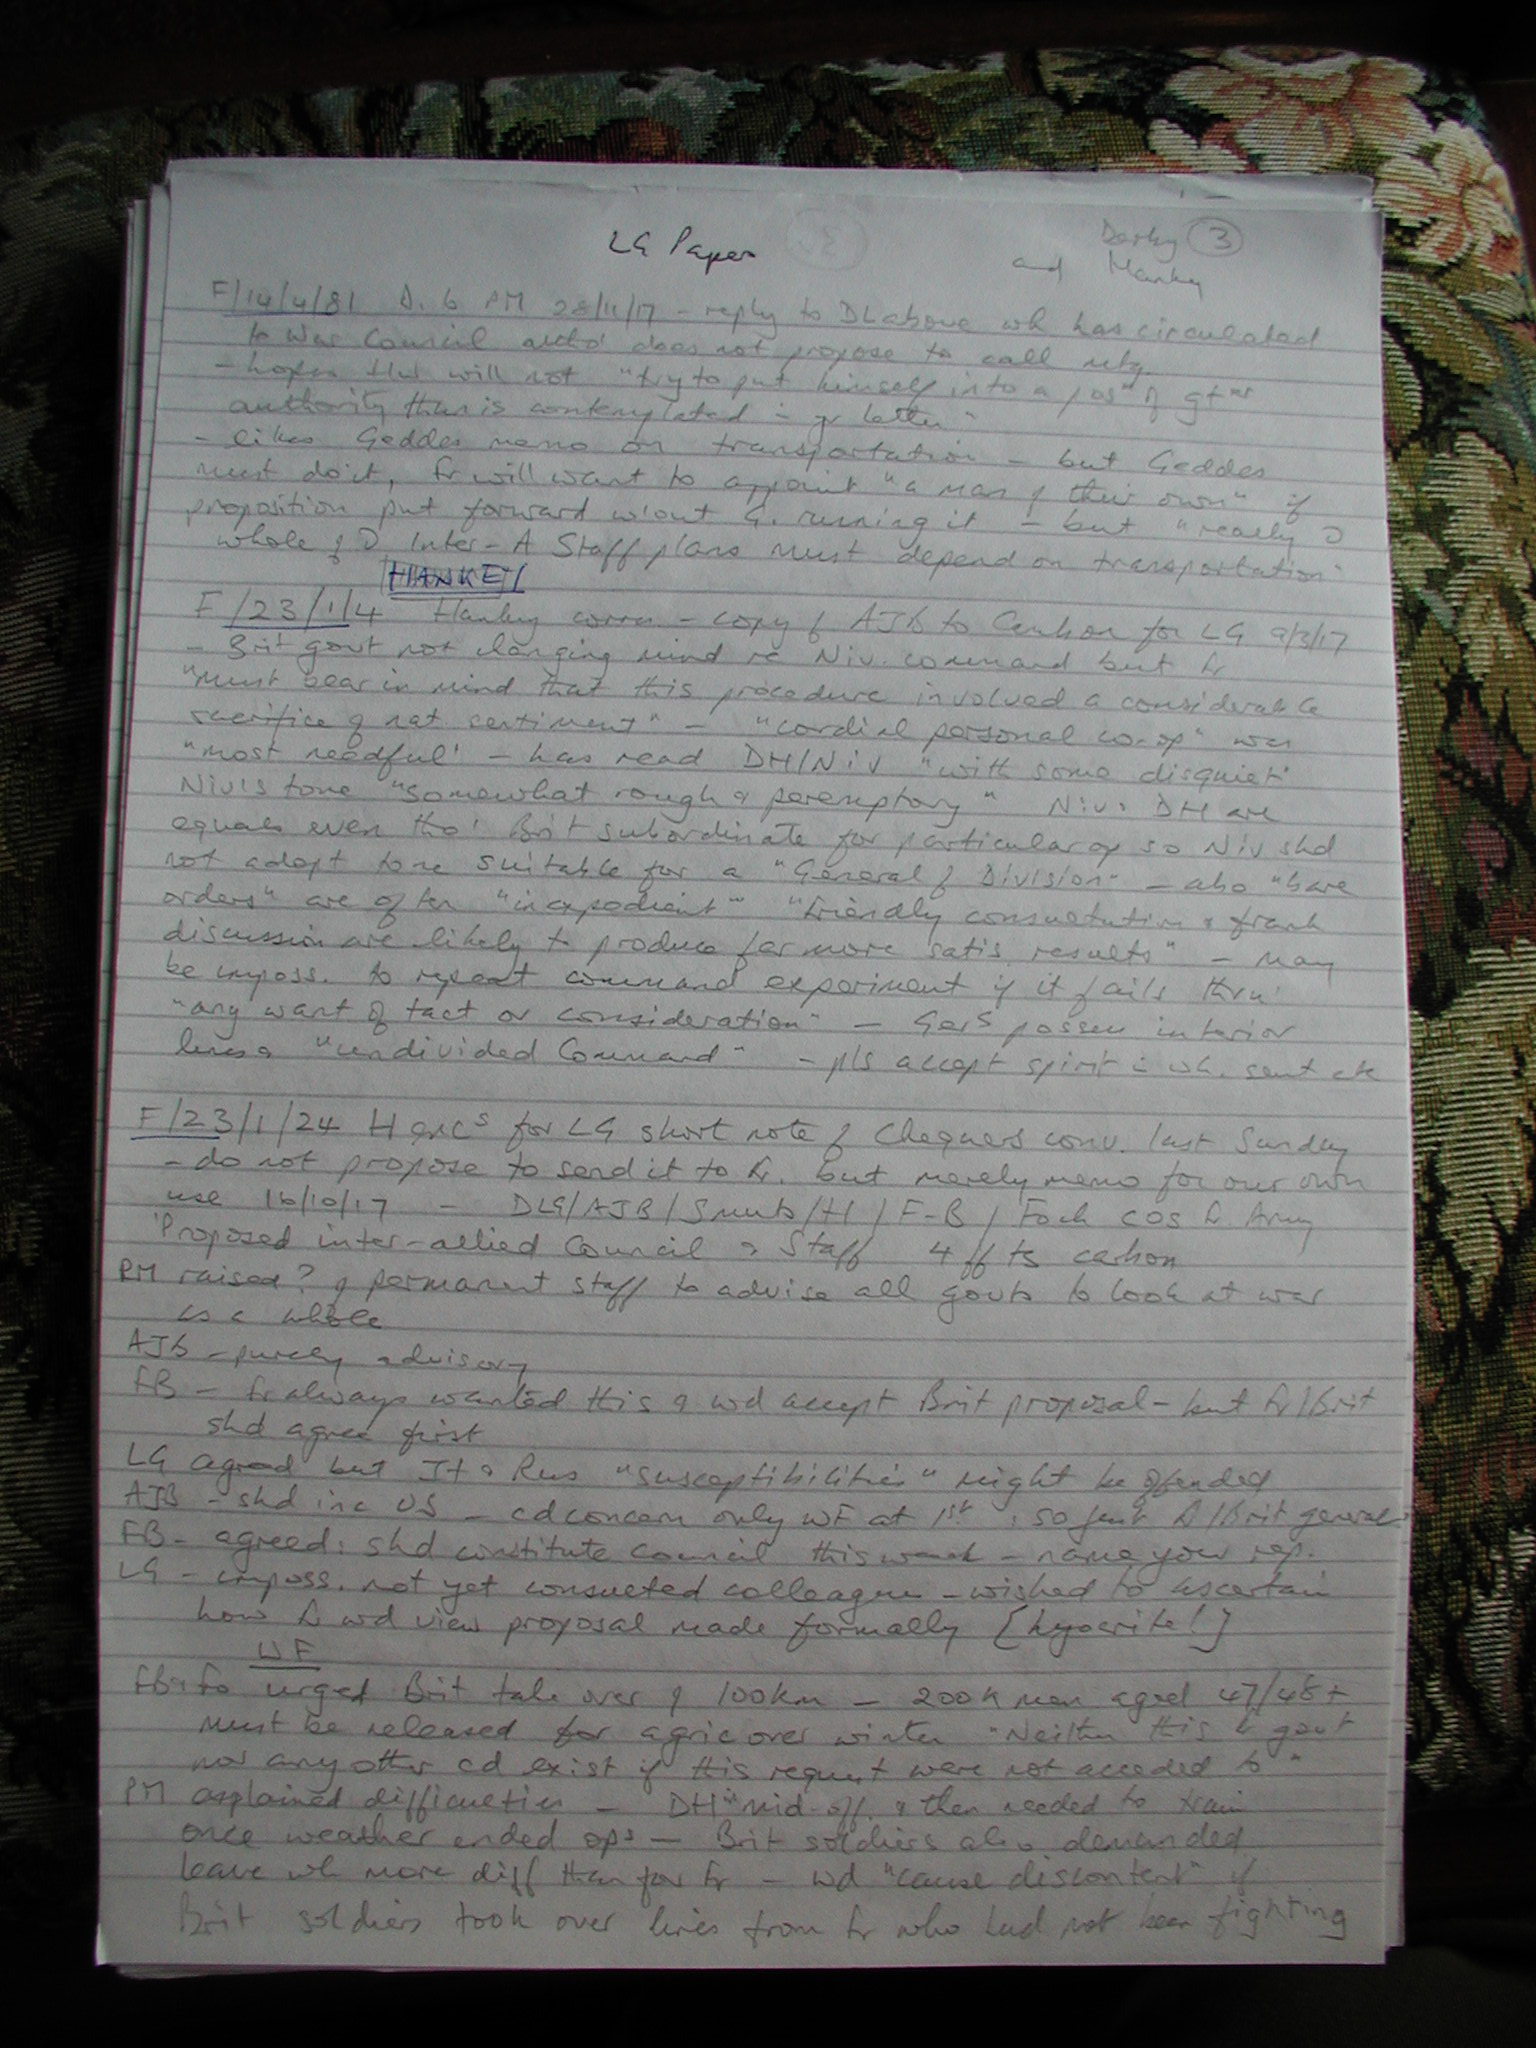 LG Papers
Derby 3
and Hankey
F/14/4/81 D. to PM 28/11/17 - reply to DL above wh has circulated
to War Council altho' does not propose to call mtg.
- hopes HW will not "try to put himself into a posn of gter
authority than is contemplated in yr letter"
- likes Geddes memo on transportation - but Geddes
must do it, Fr will want to appoint "a man of their own" if
proposition put forward w'out G. running it - but "really
whole of Inter-A Staff plans must depend on transportation"
HANKEY
F/23/1/4 Hankey corres - copy of AJB to Cambon for LG 9/3/17
- Brit govt not changing mind re Niv. command but Fr
"must bear in mind that this procedure involved a considerable
sacrifice of nat sentiment" - "cordial personal co-op" was
"most needful" - has read DH/Niv "with some disquiet"
Niv's tone "somewhat rough & peremptory" Niv & DH are
equals even tho' Brit subordinate for particular op so Niv shd
not adopt tone suitable for a "General of Division" - also "bare
orders" are often "inexpedient" "friendly consultation & frank
discussion are likely to produce far more satis. results" - may
be imposs. to repeat command experiment if it fails thru'
"any want of tact or consideration" - Gers possess interior
lines & "undivided Command" - pls accept spirit in wh. sent etc
F/23/1/24 H encs for LG short note of Chequers conv. last Sunday
- do not propose to send it to Fr. but merely memo for our own
use 16/10/17 - DLG/AJB/Smuts/H/F-B/Foch COS Fr Army
'Proposed inter-allied Council & Staff 4 ff ts carbon
PM raised ? of permanent staff to advise all govts to look at war
as a whole
AJB - purely advisory
FB - Fr always wanted this & wd accept Brit proposal - but Fr/Brit
shd agree first
LG agreed but It & Rus "susceptibilities" might be offended
AJB - shd inc US - cd concern only WF at 1st: so just Fr/Brit generals
FB - agreed: shd constitute council this week - name your rep.
LG - imposs. not yet consulted colleagues - wished to ascertain
how Fr wd view proposal made formally [hypocrite!]
WF
FB & Fo urged Brit take over of 100km - 200k men aged 47/48+
must be released for agric over winter "Neither this Fr govt
nor any other cd exist if this request were not acceded to"
PM explained difficulties - DH in mid-off. & then needed to train
once weather ended ops - Brit soldiers also demanded
leave wh more diff than for Fr - wd "cause discontent" if
Brit soldiers took over lines from Fr who had not been fighting